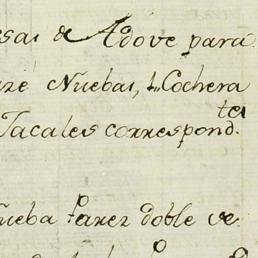 ssas de Adove para
Nuebas, 1 Cochera
Jacales correspond.tes
ueba Pared doble ve